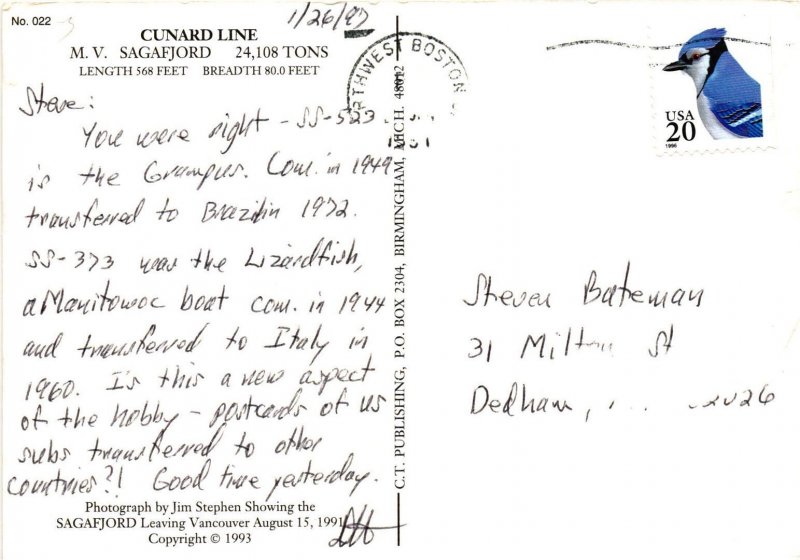 No. 022
1/26/97
CUNARD LINE
M. V. SAGAFJORD 24,108 TONS
LENGTH 568 FEET BREADTH 80.0 FEET
Steve:
You were right - SS-523
is the Grampus. Com. in 1949
transferred to Brazil in 1972.
SS-373 was the Lizardfish,
a Manitowoc boat com. in 1944
and transferred to Italy in
1960. Is this a new aspect
of the hobby - postcards of US
subs transferred to other
countries?! Good time yesterday.
Photograph by Jim Stephen Showing the
SAGAFJORD Leaving Vancouver August 15, 1991
Copyright © 1993
C.T. PUBLISHING, P.O. BOX 2304, BIRMINGHAM, MICH. 48012
RTHWEST BOSTON
USA
20
1996
Steven Bateman
31 Milton St
Dedham, 2026